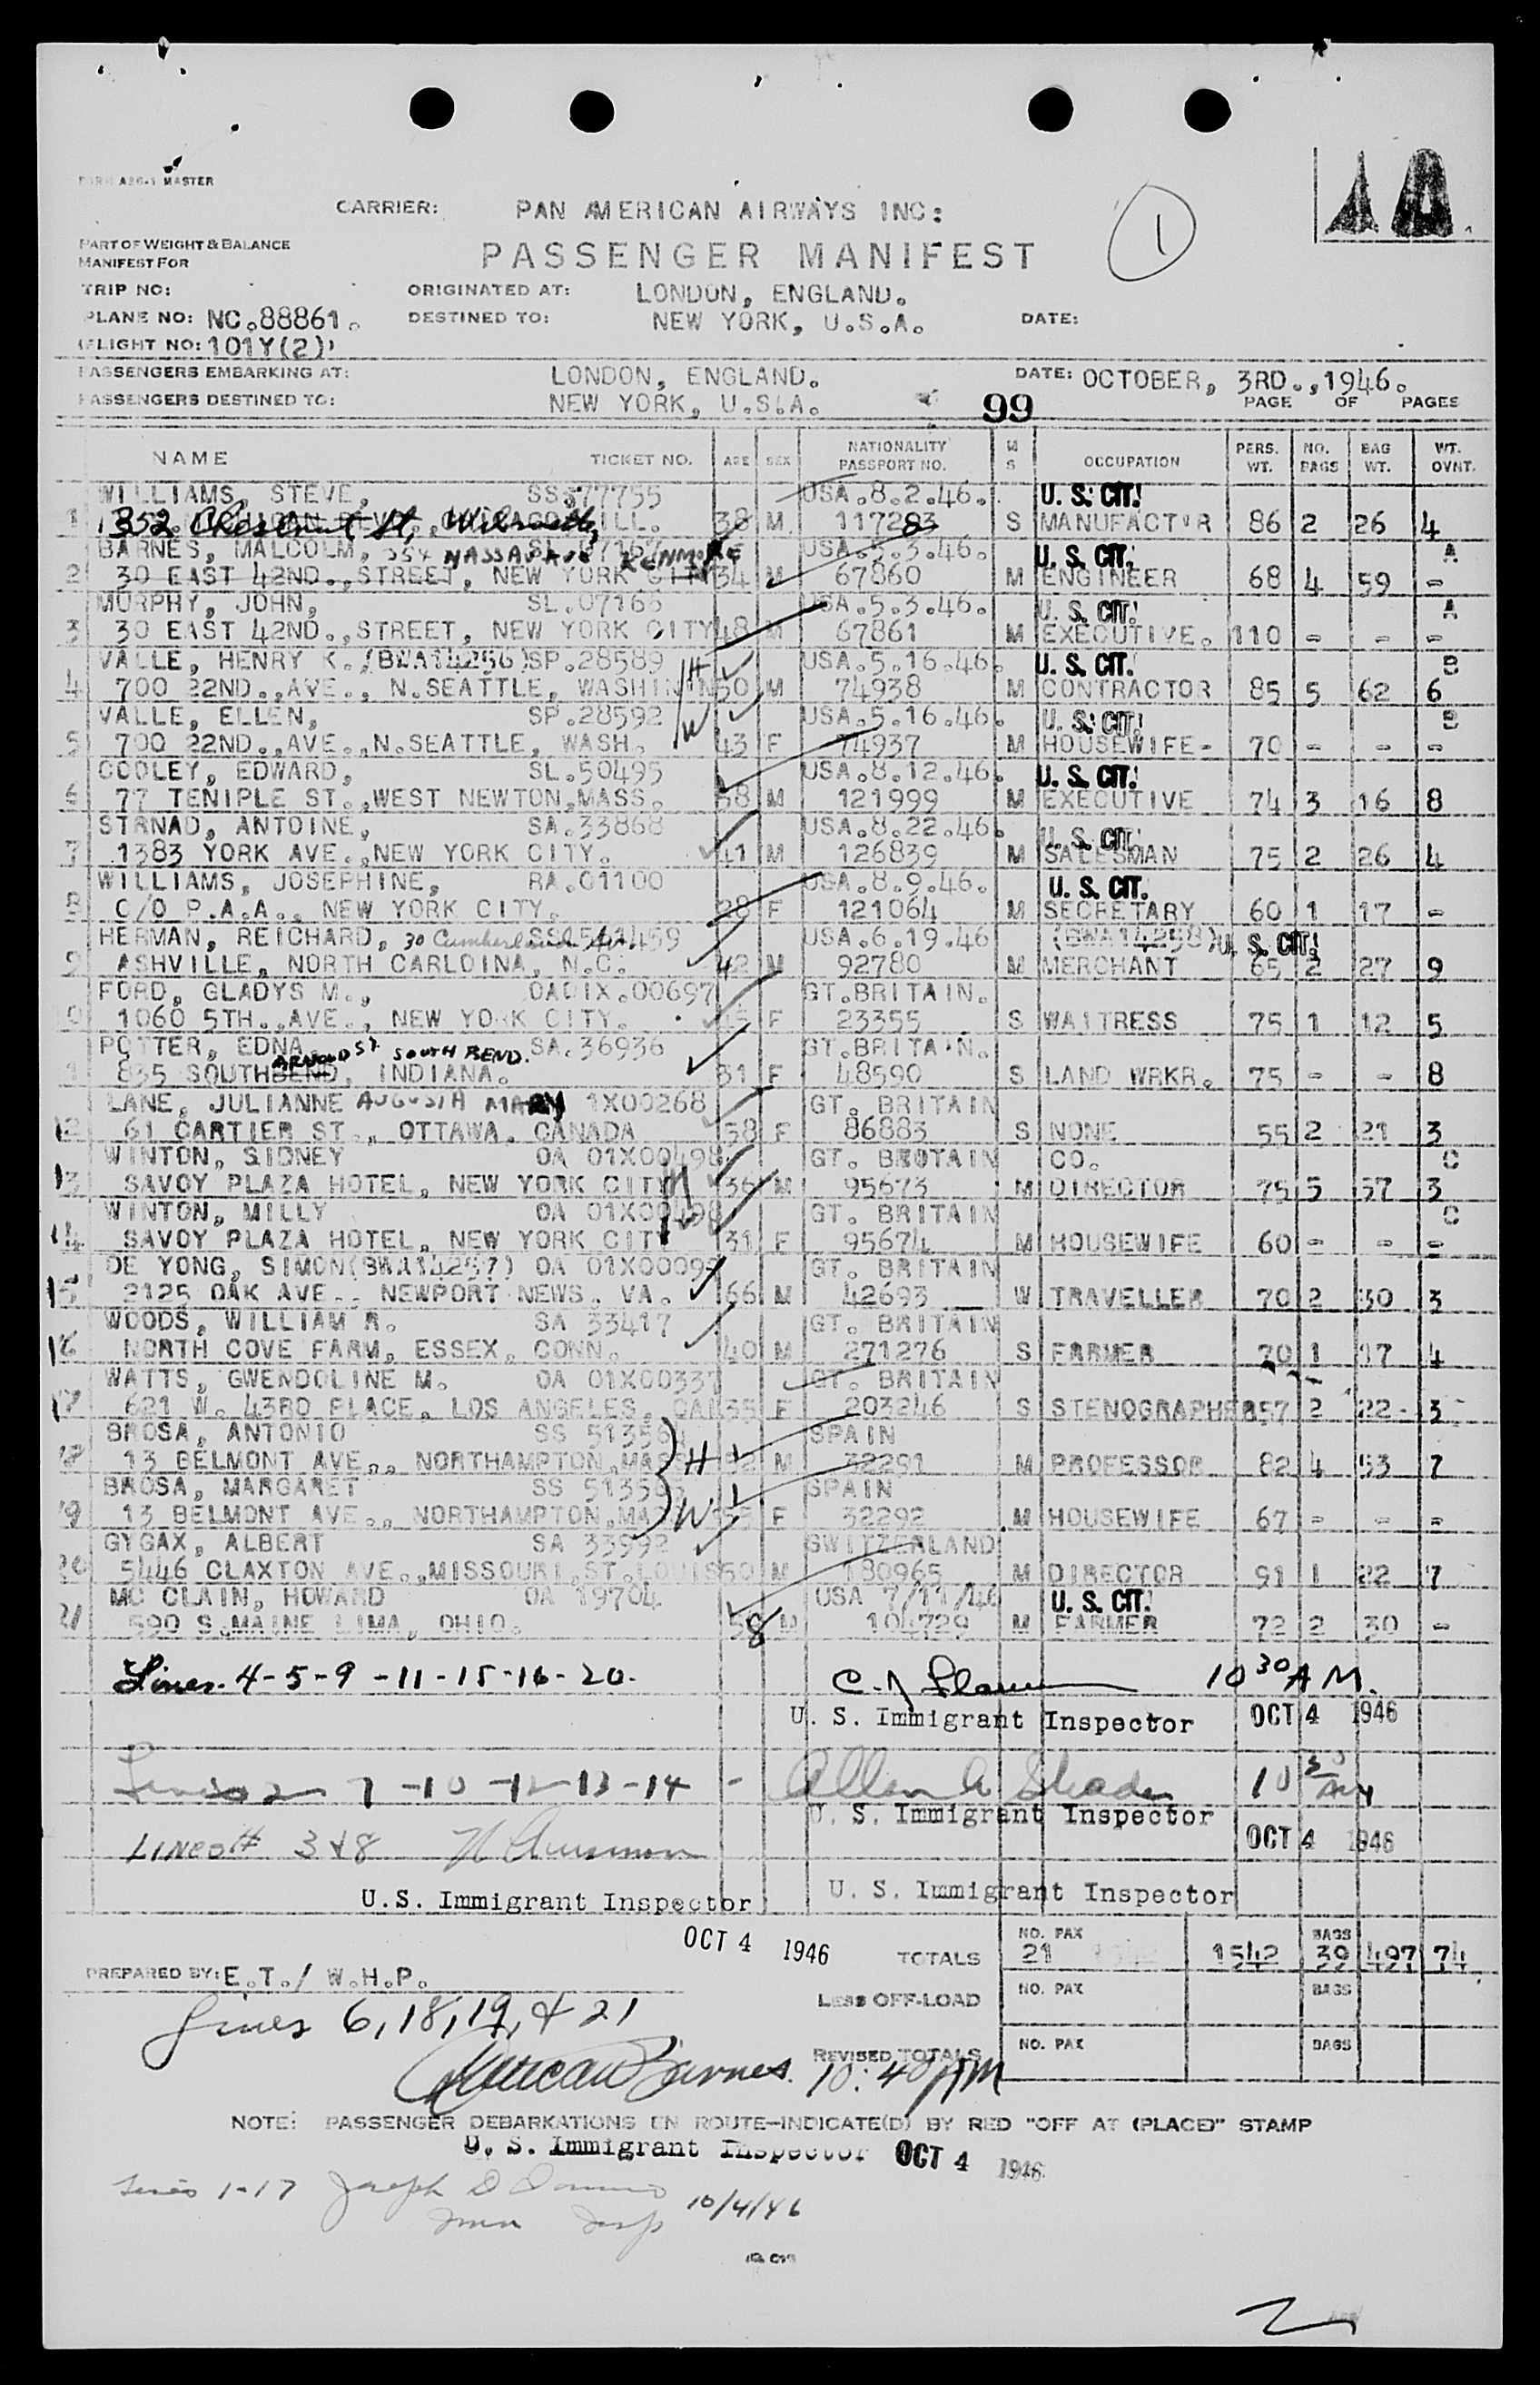 FORM A26-1 MASTER
CARRIER: PAN AMERICAN AIRWAYS INC:
1
PART OF WEIGHT & BALANCE
MANIFEST FOR
PASSENGER MANIFEST
TRIP NO: ORIGINATED AT: LONDON, ENGLAND.
PLANE NO: NC.88861. DESTINED TO: NEW YORK, U.S.A. DATE:
(FLIGHT NO: 101Y(2))
PASSENGERS EMBARKING AT: LONDON, ENGLAND. DATE: OCTOBER, 3RD.,1946.
PASSENGERS DESTINED TO: NEW YORK, U.S.A. 99 PAGE OF PAGES
NAME TICKET NO. AGE SEX NATIONALITY PASSPORT NO. M S OCCUPATION PERS. WT. NO. BAGS BAG WT. WT. OVNT.
WILLIAMS, STEVE, SS577755 USA.8.2.46. U. S. CIT.
1 352 Chestnut St, Wilmette, ILL. 38 M 117283 S MANUFACTUR 86 2 26 4
BARNES, MALCOLM, 354 NASSAU AVE KENMORE SL.07167 USA.5.3.46. U. S. CIT. A
2 30 EAST 42ND.,STREET, NEW YORK CITY 34 M 67860 M ENGINEER 68 4 59 -
MURPHY, JOHN, SL.07166 USA.5.3.46. U. S. CIT. A
3 30 EAST 42ND.,STREET, NEW YORK CITY 48 M 67861 M EXECUTIVE. 110 - - -
VALLE, HENRY K.(BWA14256)SP.28589 H USA.5.16.46. U. S. CIT. B
4 700 22ND.,AVE., N.SEATTLE, WASHINGTN 50 M 74938 M CONTRACTOR 85 5 62 6
VALLE, ELLEN, SP.28592 W USA.5.16.46. U. S. CIT. B
5 700 22ND.,AVE.,N.SEATTLE, WASH. 43 F 74937 M HOUSEWIFE- 70 - - -
COOLEY, EDWARD, SL.50495 USA.8.12.46. U. S. CIT.
6 77 TENIPLE ST.,WEST NEWTON,MASS. 38 M 121999 M EXECUTIVE 74 3 16 8
STRNAD, ANTOINE, SA.33868 USA.8.22.46. U. S. CIT.
7 1383 YORK AVE.,NEW YORK CITY. 41 M 126839 M SALESMAN 75 2 26 4
WILLIAMS, JOSEPHINE, RA.01100 USA.8.9.46. U. S. CIT.
8 C/O P.A.A., NEW YORK CITY. 28 F 121064 M SECRETARY 60 1 17 -
HERMAN, REICHARD, 30 Cumberland Ave. SS0541459 USA.6.19.46 (BWA14258) U. S. CIT.
9 ASHVILLE, NORTH CARLOINA, N.C. 42 M 92780 M MERCHANT 65 2 27 9
FORD, GLADYS M., OADIX.00697 GT.BRITAIN.
10 1060 5TH.,AVE., NEW YORK CITY. F 23355 S WAITRESS 75 1 12 5
POTTER, EDNA. ARNOLD ST SOUTH BEND. SA.36936 GT.BRITAIN.
835 SOUTHBEND, INDIANA. 31 F 48590 S LAND WRKR. 75 - - 8
LANE, JULIANNE AUGUSTA MARY 1X00268 GT. BRITAIN
12 61 CARTIER ST., OTTAWA, CANADA 58 F 86883 S NONE 55 2 21 3
WINTON, SIDNEY OA 01X00498 GT. BROTAIN CO. C
13 SAVOY PLAZA HOTEL, NEW YORK CITY H 36 M 95673 M DIRECTOR 75 5 57 3
WINTON, MILLY OA 01X00498 GT. BRITAIN C
14 SAVOY PLAZA HOTEL, NEW YORK CITY W 31 F 95674 M HOUSEWIFE 60 - - -
DE YONG, SIMON(BWA14257) OA 01X00099 GT. BRITAIN
15 2125 OAK AVE., NEWPORT NEWS. VA. 66 M 42693 W TRAVELLER 70 2 30 3
WOODS, WILLIAM R. SA 33417 GT. BRITAIN
16 NORTH COVE FARM, ESSEX, CONN. 40 M 271276 S FARMER 70 1 17 4
WATTS, GWENDOLINE M. OA 01X00337 GT. BRITAIN
17 621 W. 43RD PLACE, LOS ANGELES, CAL 35 F 203246 S STENOGRAPHER 57 2 22 3
BROSA, ANTONIO SS 51356 SPAIN
18 13 BELMONT AVE,, NORTHAMPTON,MASS H 52 M 32291 M PROFESSOR 82 4 53 7
BROSA, MARGARET SS 513565 SPAIN
19 13 BELMONT AVE., NORTHAMPTON,MASS W F 32292 M HOUSEWIFE 67 - - -
GYGAX, ALBERT SA 33992 SWITZERLAND
20 5446 CLAXTON AVE.,MISSOURI,ST.LOUIS 50 M 180965 M DIRECTOR 91 1 22 7
MC CLAIN, HOWARD OA 19704 USA 7/11/46 U. S. CIT.
21 590 S.MAINE LIMA, OHIO. 58 M 104729 M FARMER 72 2 30 -
Lines. 4-5-9-11-15-16-20. 10 30 AM.
U. S. Immigrant Inspector OCT 4 1946
Lines 2 7-10-12-13-14 - Allen 10 30 AM
U. S. Immigrant Inspector
OCT 4 1946
LINES # 3 & 8
U. S. Immigrant Inspector
U.S. Immigrant Inspector
OCT 4 1946
TOTALS NO. PAX 21 1542 BAGS 39 497 74
PREPARED BY: E.T./ W.H.P.
LESS OFF-LOAD NO. PAX BAGS
Lines 6,18,19, & 21
REVISED TOTALS NO. PAX BAGS
Duncan Barnes. 10:40 AM
NOTE: PASSENGER DEBARKATIONS EN ROUTE—INDICATE(D) BY RED "OFF AT (PLACE)" STAMP
U. S. Immigrant Inspector OCT 4 1946
Lines 1-17 Joseph D 10/4/46
Imm Insp